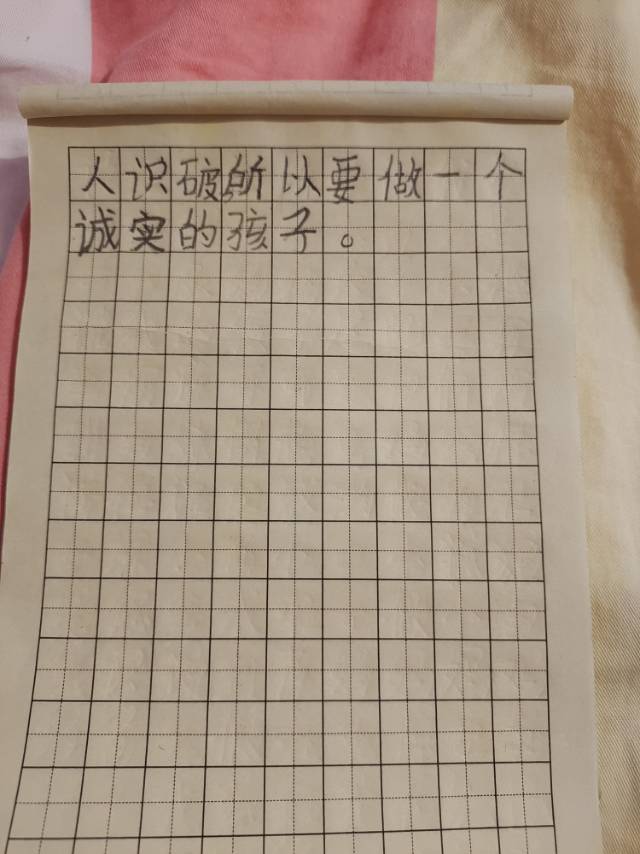 人识破所以要做一个
诚实的孩子。